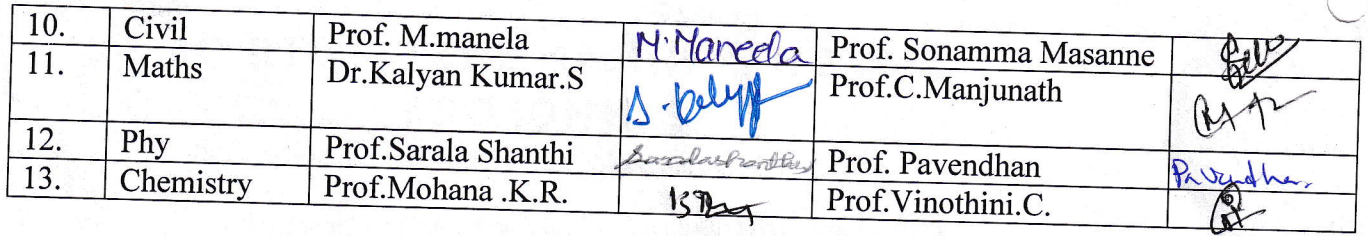 10. Civil Prof. M.manela M.Maneela Prof. Sonamma Masanne
11. Maths Dr.Kalyan Kumar.S Prof.C.Manjunath
12. Phy Prof.Sarala Shanthi Saralashanthi Prof. Pavendhan Pavendhan
13. Chemistry Prof.Mohana .K.R. Prof.Vinothini.C.